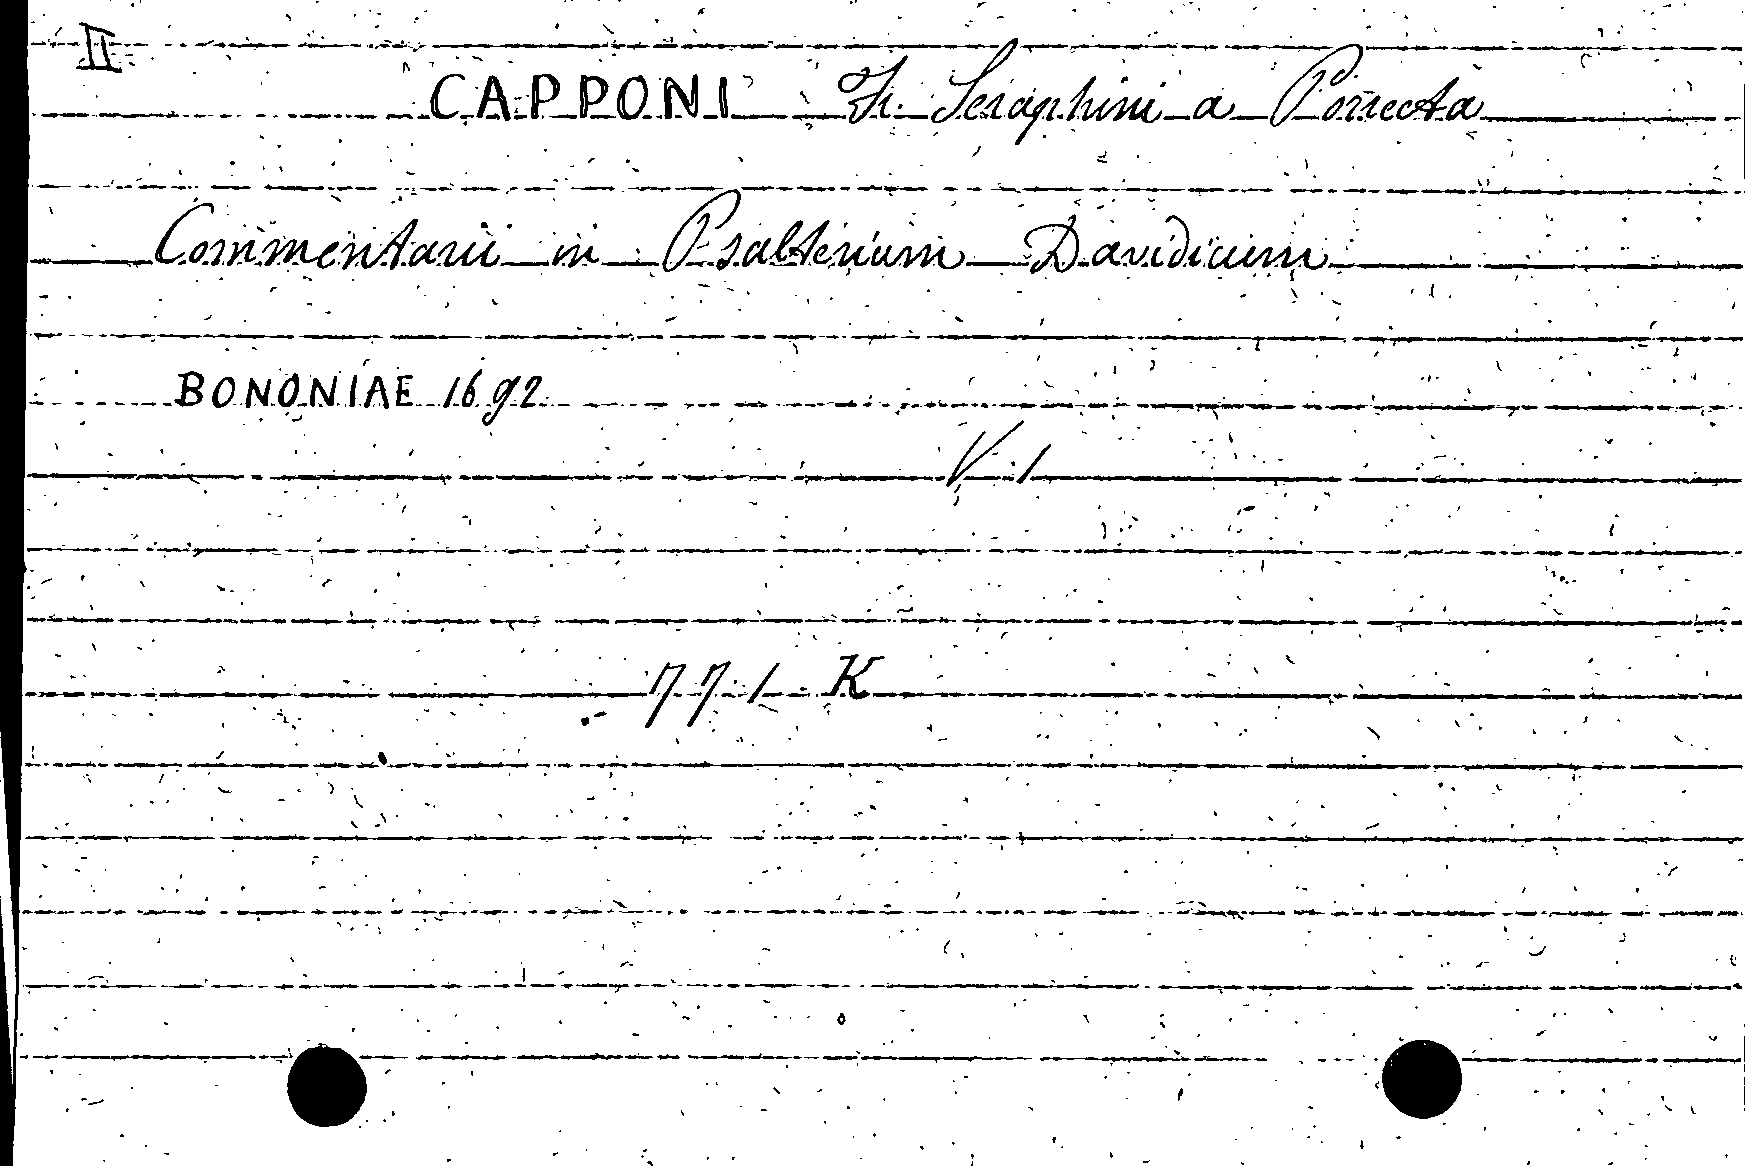 II
CAPPONI Fr. Seraphini a Porrecta
Commentarii in Psalterium Davidicum
BONONIAE 1692
V. 1
771 K